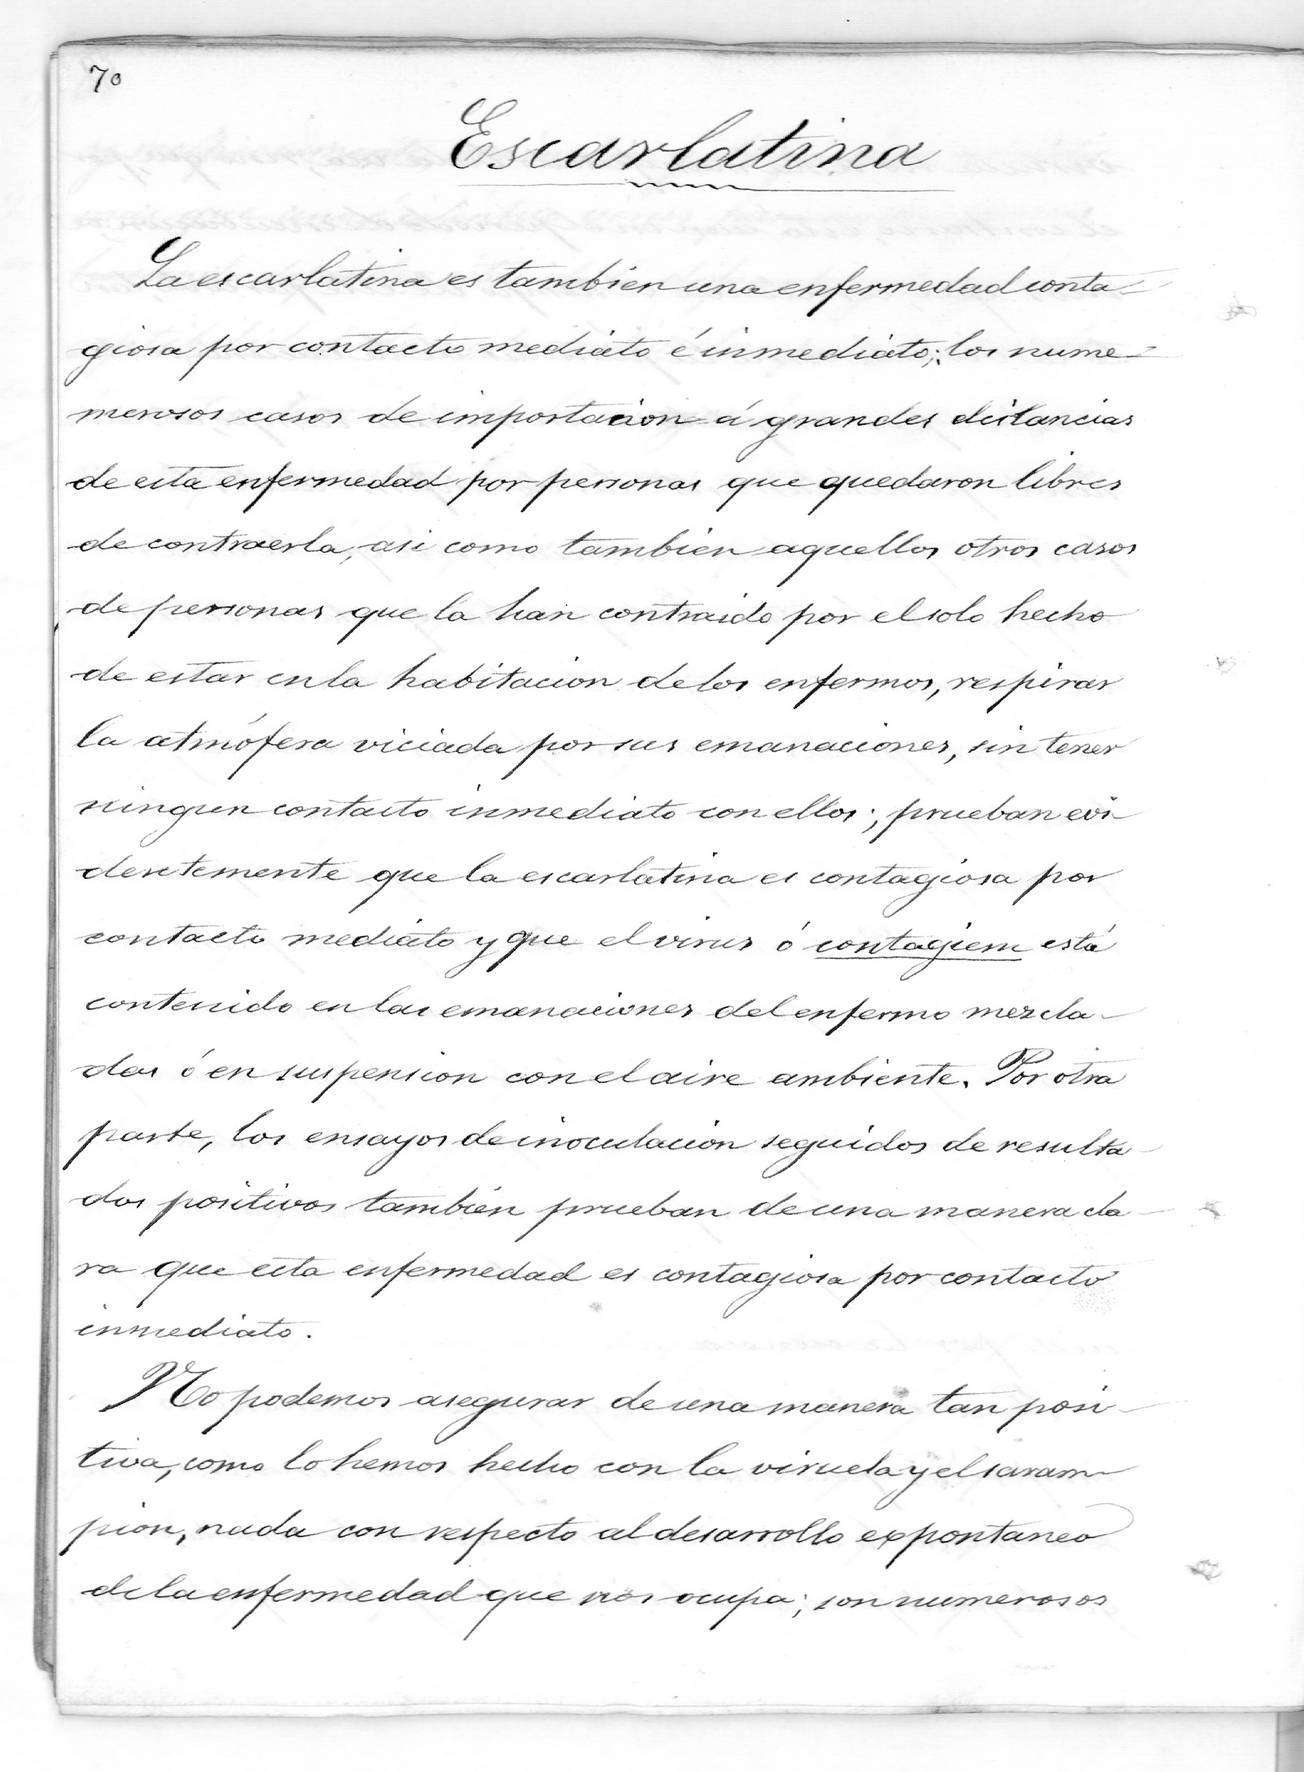 70
Escarlatina
La escarlatina es tambien una enfermedad conta-
giosa por contacto mediato é inmediato; los nume-
merosos casos de importacion á grandes distancias
de esta enfermedad por personas que quedaron libres
de contraerla, asi como tambien aquellos otros casos
de personas que la han contraido por el solo hecho
de estar en la habitacion de los enfermos, respirar
la atmófera viciada por sus emanaciones, sin tener
ningun contacto inmediato con ellos; prueban evi-
dentemente que la escarlatina es contagiosa por
contacto mediato y que el virus ó contagium está
contenido en las emanaciones del enfermo mezcla-
das ó en suspension con el aire ambiente. Por otra
parte, los ensayos de inoculacion seguidos de resulta-
dos positivos tambien prueban de una manera cla-
ra que esta enfermedad es contagiosa por contacto
inmediato.
No podemos asegurar de una manera tan posi-
tiva, como lo hemos hecho con la viruela y el saram-
pion, nada con respecto al desarrollo expontaneo
de la enfermedad que nos ocupa; son numerosos